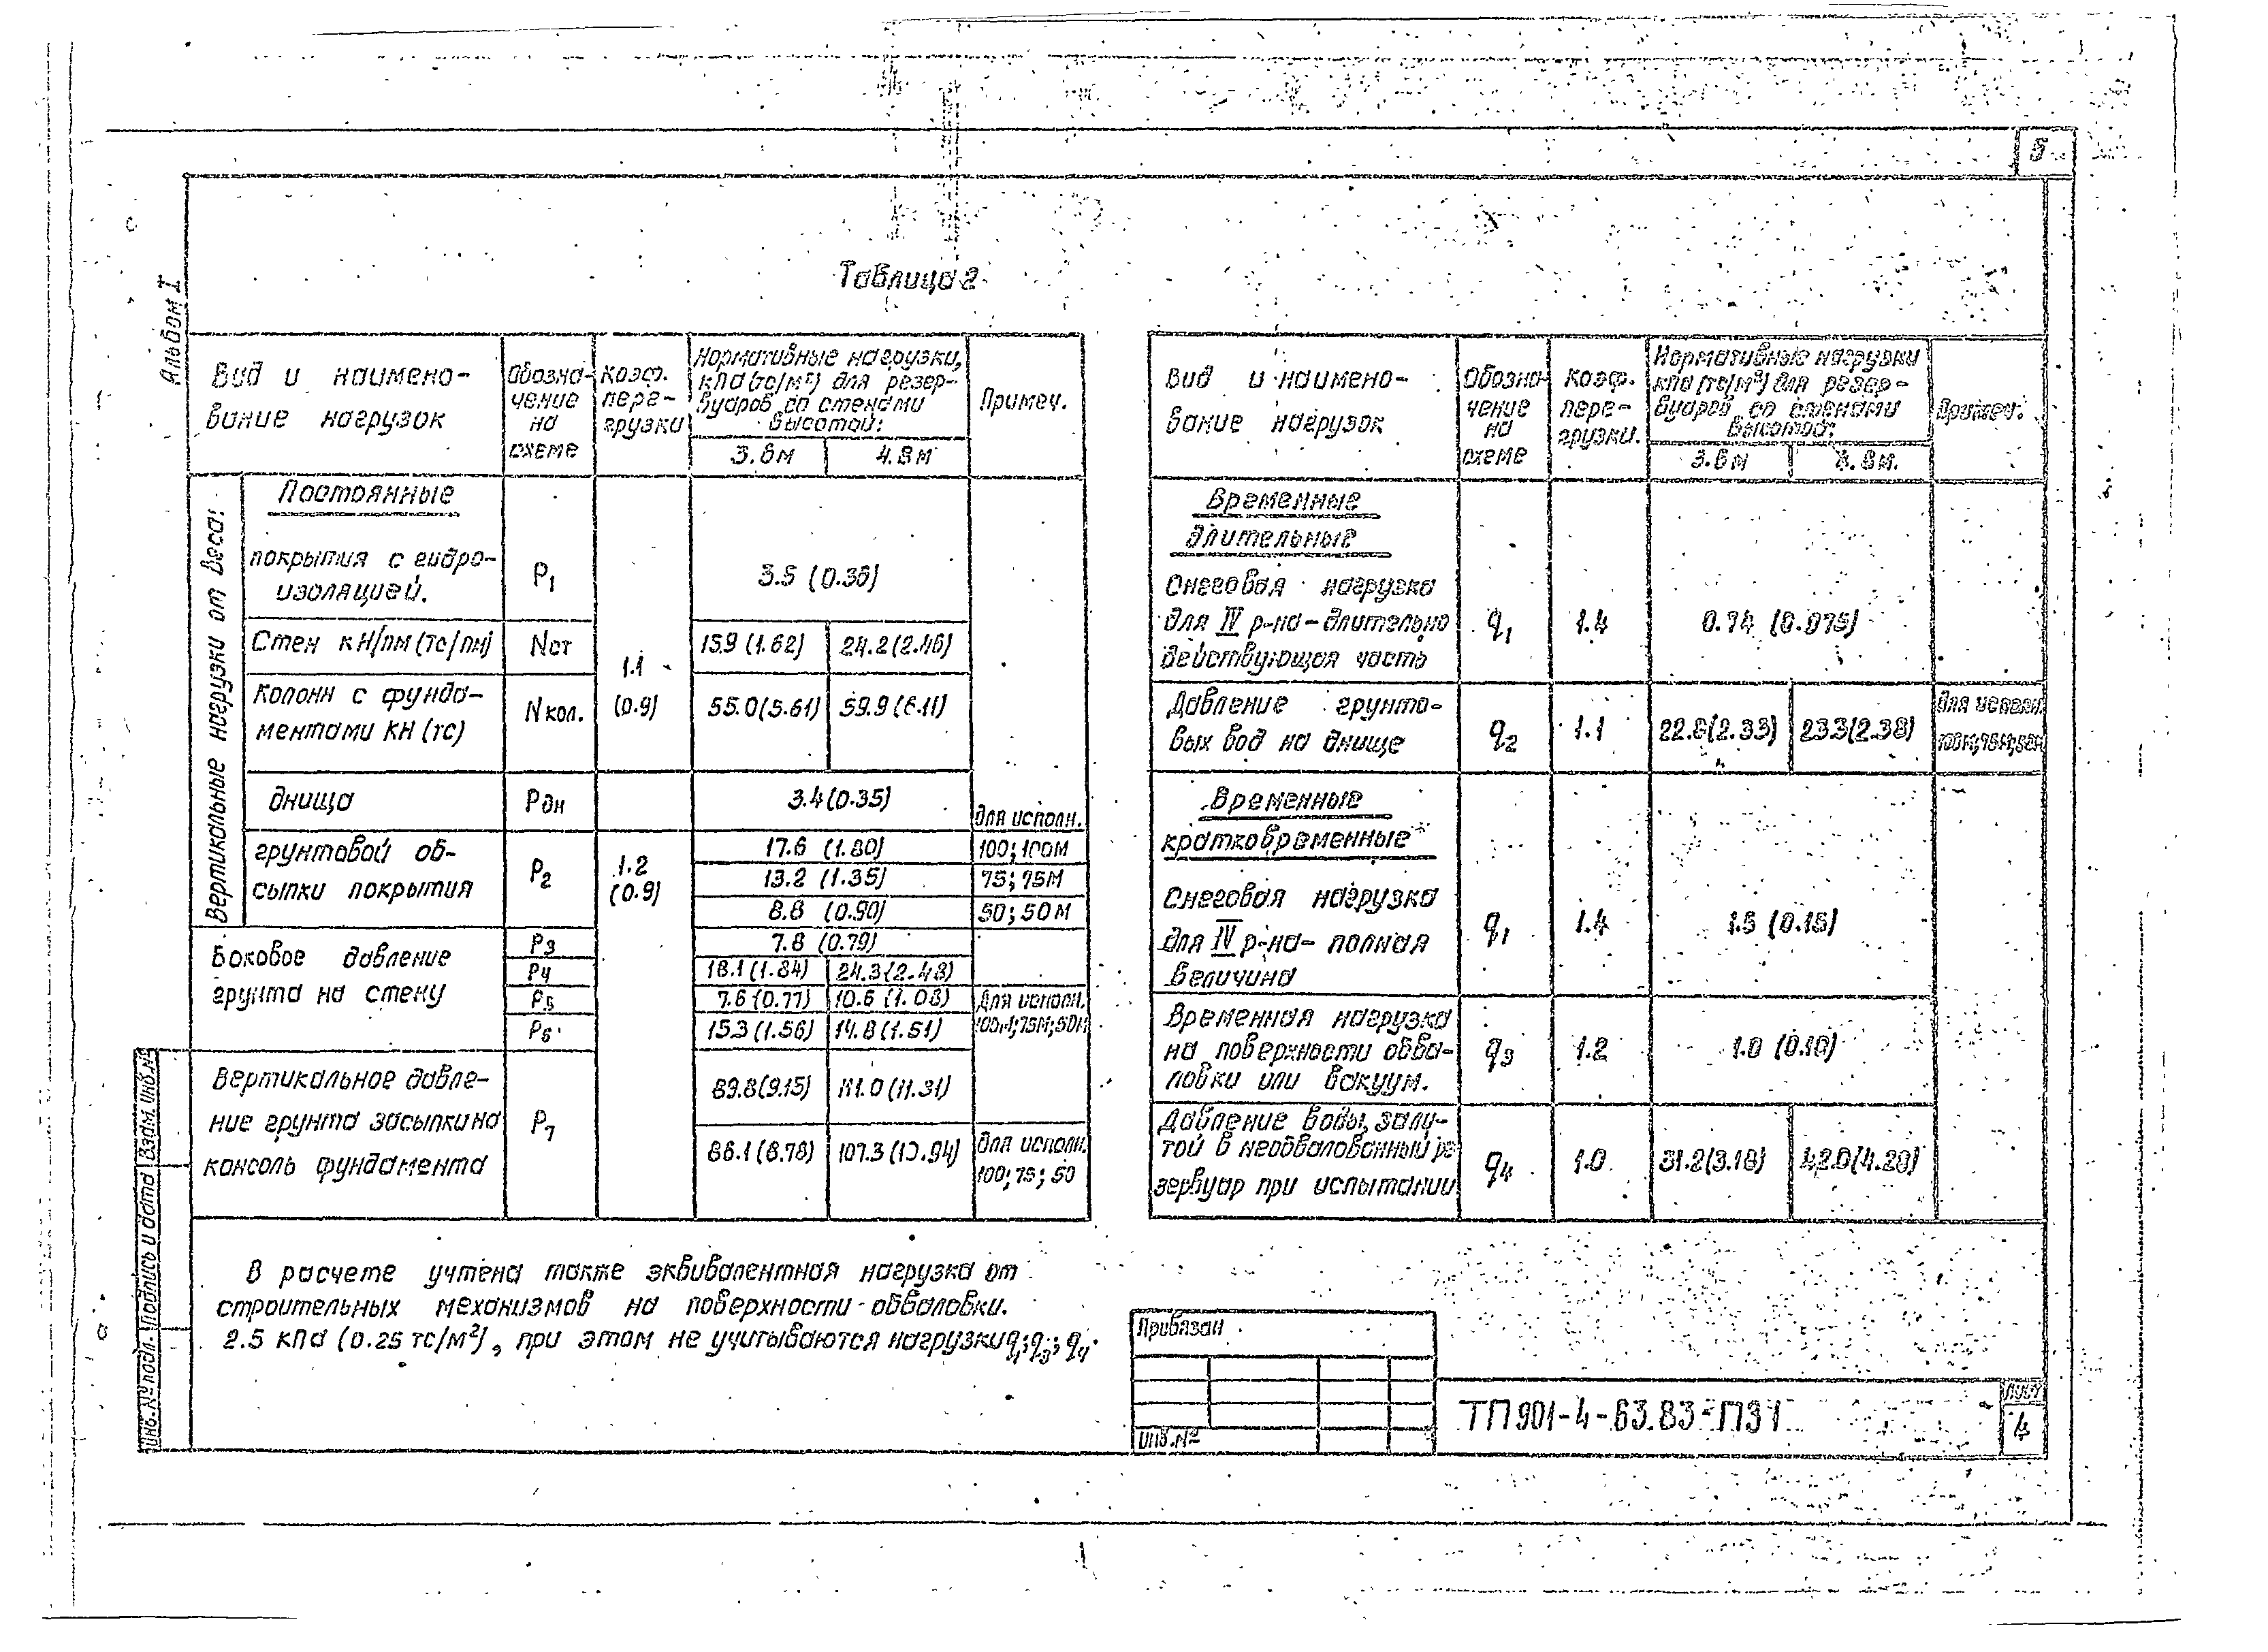 5
Альбом I
Таблица 2
Вид и наимено-
вание нагрузок
Обозна-
чение
на
схеме
Коэф.
пере-
грузки
Нормативные нагрузки,
кПа (тс/м²) для резер-
вуаров со стенами
высотой:
3.6м
4.8м
Примеч.
Вертикальные нагрузки от веса:
Постоянные
покрытия с гидро-
изоляцией.
P1
1.1
(0.9)
3.5 (0.36)
Стен кН/пм (тс/пм)
Nст
15.9 (1.62)
24.2 (2.46)
Колонн с фунда-
ментами кН (тс)
Nкол.
55.0 (5.61)
59.9 (6.11)
днища
Pдн
3.4 (0.35)
грунтовой об-
сыпки покрытия
P2
1.2
(0.9)
для исполн.
17.6 (1.80)
100; 100М
13.2 (1.35)
75; 75М
8.8 (0.90)
50; 50М
Боковое давление
грунта на стену
P3
7.8 (0.79)
P4
18.1 (1.84)
24.3 (2.48)
P5
7.6 (0.77)
10.6 (1.08)
Для исполн.
P6
15.3 (1.56)
14.8 (1.51)
100М; 75М; 50М
Вертикальное давле-
ние грунта засыпки на
консоль фундамента
P7
89.8 (9.15)
111.0 (11.31)
86.1 (8.78)
107.3 (10.94)
Для исполн.
100; 75; 50
Вид и наимено-
вание нагрузок
Обозна-
чение
на
схеме
Коэф.
пере-
грузки.
Нормативные нагрузки
кПа (тс/м²) для резер-
вуаров со стенами
высотой:
3.6м
4.8м.
Примеч.
Временные
длительные
Снеговая нагрузка
для IV р-на-длительно
действующая часть
q1
1.4
0.74 (0.075)
Давление грунто-
вых вод на днище
q2
1.1
22.8 (2.33)
23.3 (2.38)
Для исполн.
100М; 75М; 50М
Временные
кратковременные
Снеговая нагрузка
для IV р-на- полная
величина
q1
1.4
1.5 (0.15)
Временная нагрузка
на поверхности обва-
ловки или вакуум.
q3
1.2
1.0 (0.10)
Давление воды, зали-
той в необвалованный ре
зервуар при испытании
q4
1.0
31.2 (3.18)
42.0 (4.28)
В расчете учтена также эквивалентная нагрузка от
строительных механизмов на поверхности обваловки.
2.5 кПа (0.25 тс/м²), при этом не учитываются нагрузки q1; q3; q4.
Привязан
Инв.№
ТП 901-4-63.83-ПЗ1
Лист
4
Инв. № подл.
Подпись и дата
Взам. инв. №